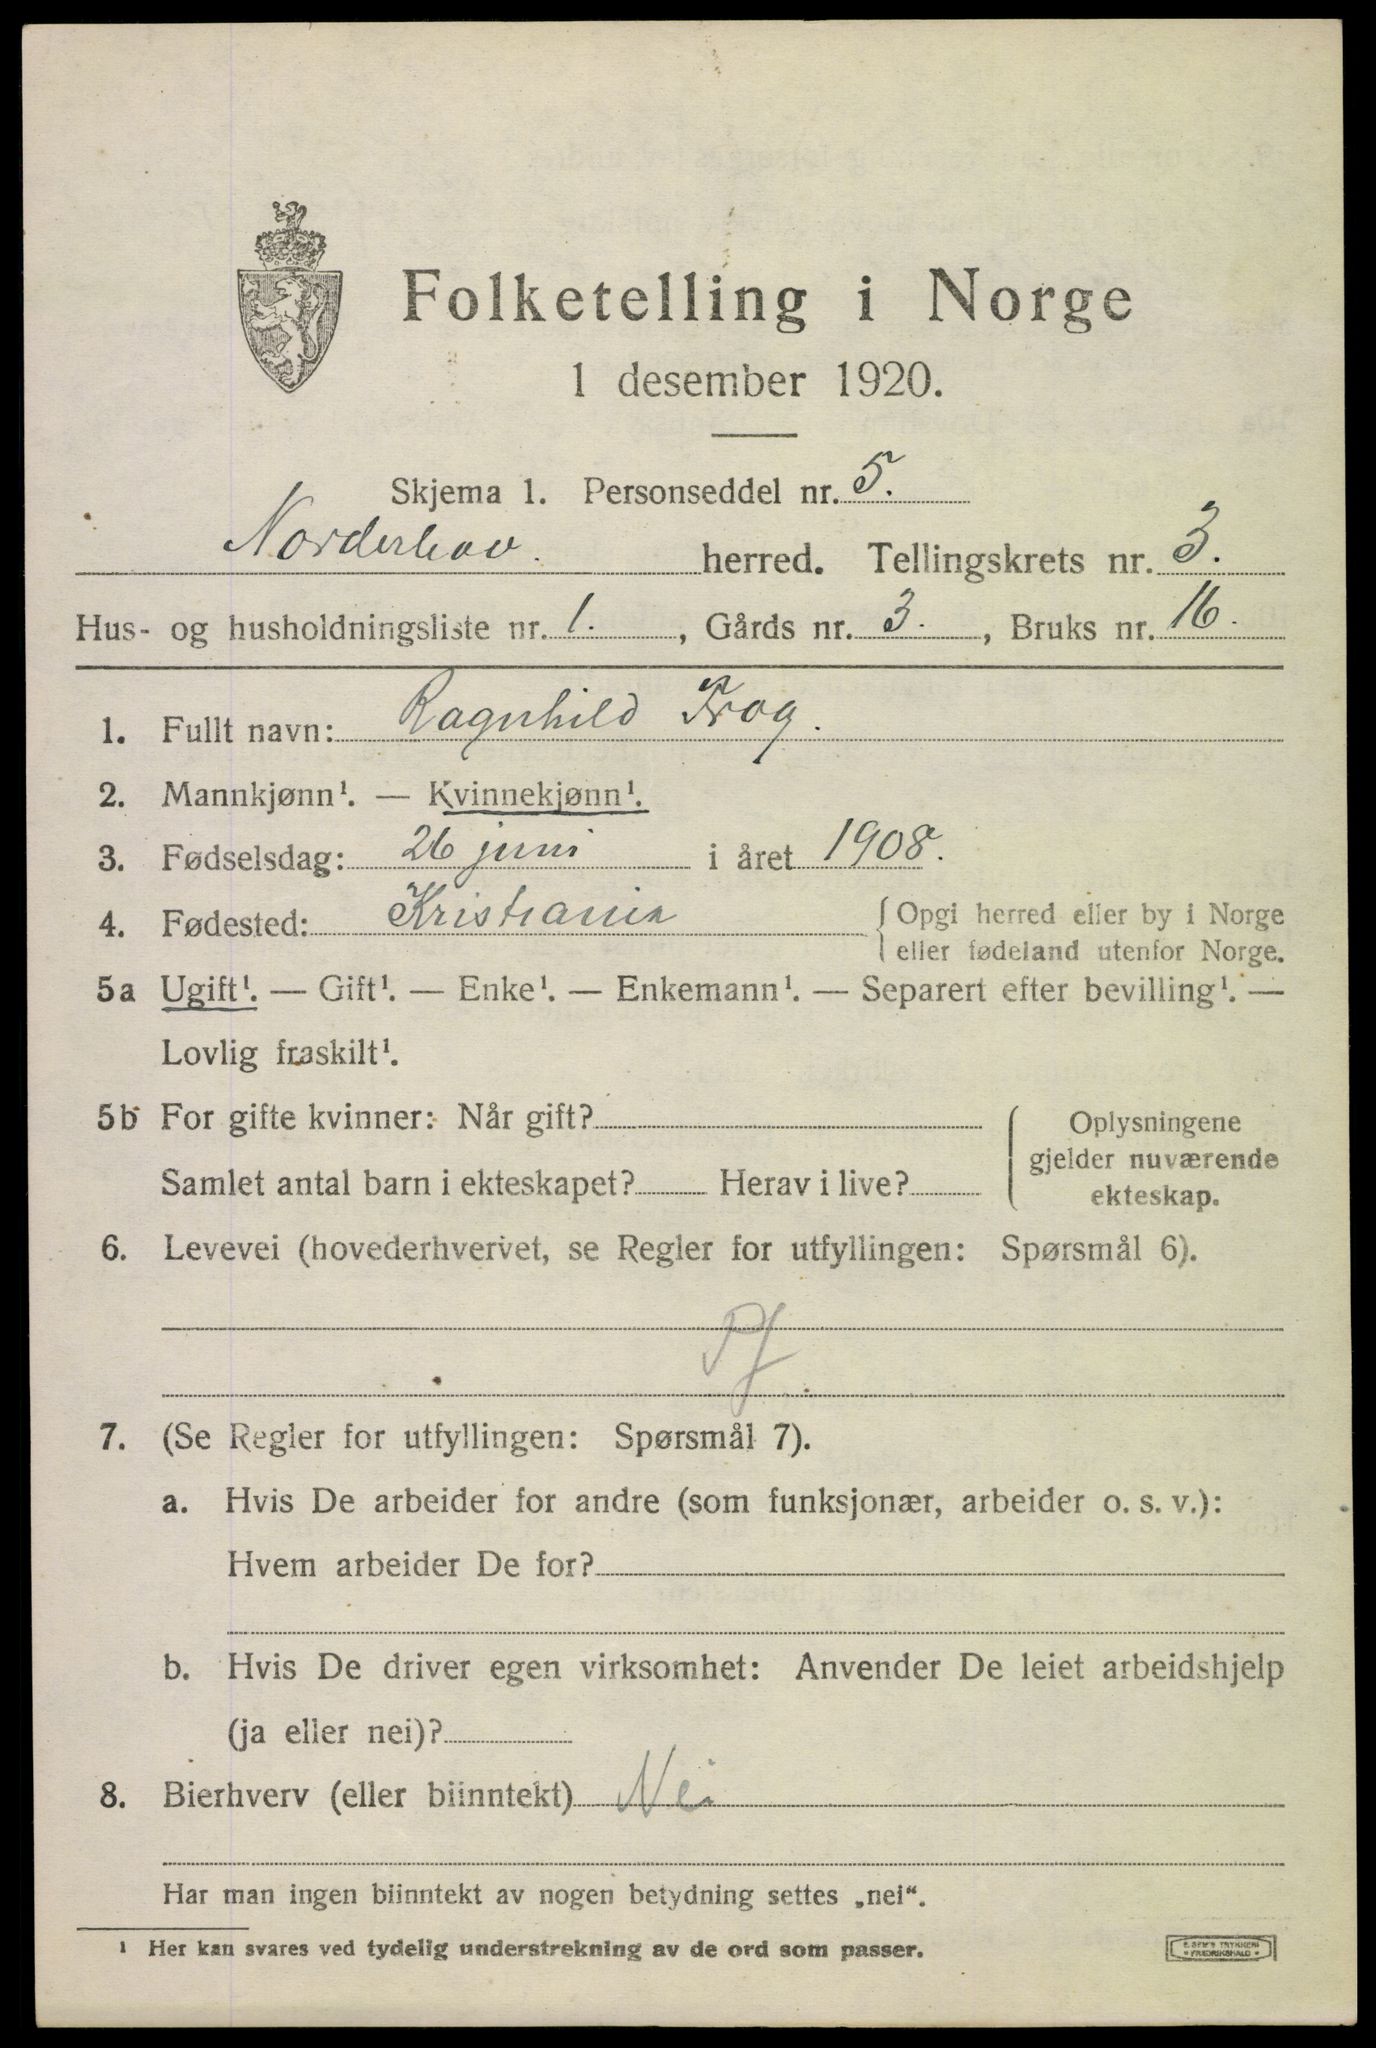 Folketelling i Norge
1 desember 1920.
Skjema 1. Personseddel nr. 5.
Norderhov. herred. Tellingskrets nr. 3.
Hus- og husholdningsliste nr. 1. , Gårds nr. 3. , Bruks nr. 16.
1. Fullt navn: Ragnhild Frog.
2. Mannkjønn¹. — Kvinnekjønn¹.
3. Fødselsdag: 26 juni i året 1908.
4. Fødested: Kristiania {Opgi herred eller by i Norge
eller fødeland utenfor Norge.
5a Ugift¹. — Gift¹. — Enke¹. — Enkemann¹. — Separert efter bevilling¹. —
Lovlig fraskilt¹.
5b For gifte kvinner: Når gift?
Samlet antal barn i ekteskapet? Herav i live?
Oplysningene
gjelder nuværende
ekteskap.
6. Levevei (hovederhvervet, se Regler for utfyllingen: Spørsmål 6).
7. (Se Regler for utfyllingen: Spørsmål 7).
a. Hvis De arbeider for andre (som funksjonær, arbeider o. s. v.):
Hvem arbeider De for?
b. Hvis De driver egen virksomhet: Anvender De leiet arbeidshjelp
(ja eller nei)?
8. Bierhverv (eller biinntekt) Nei
Har man ingen biinntekt av nogen betydning settes „nei“.
¹ Her kan svares ved tydelig understrekning av de ord som passer.